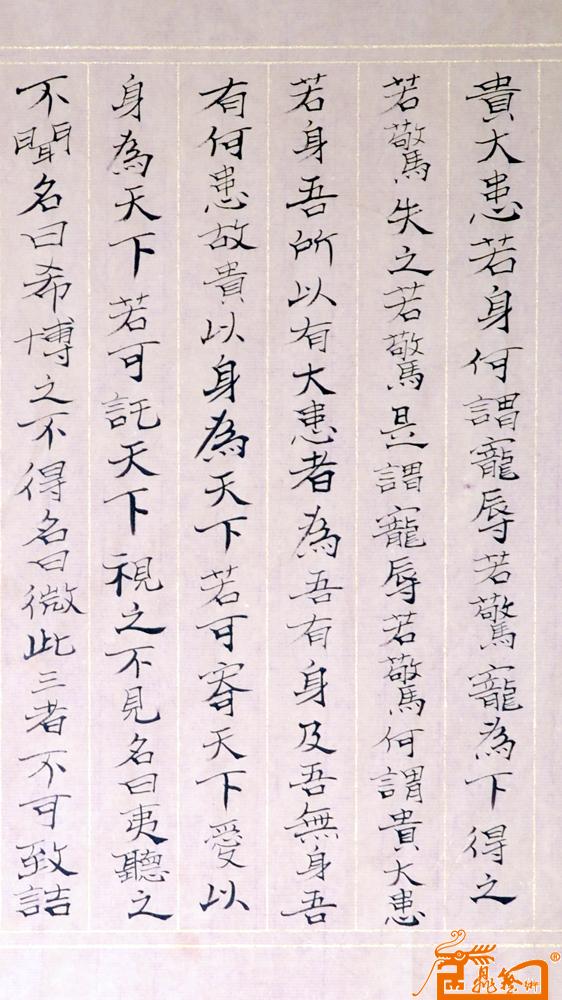 貴大患若身何謂寵辱若驚寵為下得之
若驚失之若驚是謂寵辱若驚何謂貴大患
若身吾所以有大患者為吾有身及吾無身吾
有何患故貴以身為天下若可寄天下愛以
身為天下若可託天下視之不見名曰夷聽之
不聞名曰希博之不得名曰微此三者不可致詰